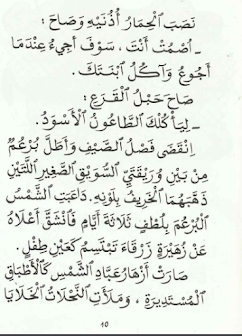 نَصَبَ ٱلْحِمَارُ أُذُنَيْهِ وَصَاحَ :
ـ اُصْمُتْ أَنْتَ ، سَوْفَ أَجِيءُ عِنْدَمَا
أَجُوعُ وَآكُلُ ٱبْنَتَكَ .
صَاحَ حَبْلُ ٱلْقَرَعِ :
ـ لِيَأْكُلْكَ ٱلطَّاعُونُ ٱلْأَسْوَدُ .
اِنْقَضَى فَصْلُ ٱلصَّيْفِ وَأَطَلَّ بُرْعُمٌ
مِنْ بَيْنِ وُرَيْقَتَيِ ٱلسُّوَيْقِ ٱلصَّغِيرِ ٱللَّتَيْنِ
ذَهَّبَهُمَا ٱلْخَرِيفُ بِلَوْنِهِ . دَاعَبَتِ ٱلشَّمْسُ
ٱلْبُرْعُمَ بِلُطْفٍ ثَلَاثَةَ أَيَّامٍ فَٱنْشَقَّ أَعْلَاهُ
عَنْ زُهَيْرَةٍ زَرْقَاءَ تَبْتَسِمُ كَعَيْنِ طِفْلٍ .
صَارَتْ أَزْهَارُ عَبَّادِ ٱلشَّمْسِ كَٱلْأَطْبَاقِ
ٱلْمُسْتَدِيرَةِ ، وَمَلَأَتِ ٱلنَّحْلَاتُ ٱلْخَلَايَا
10